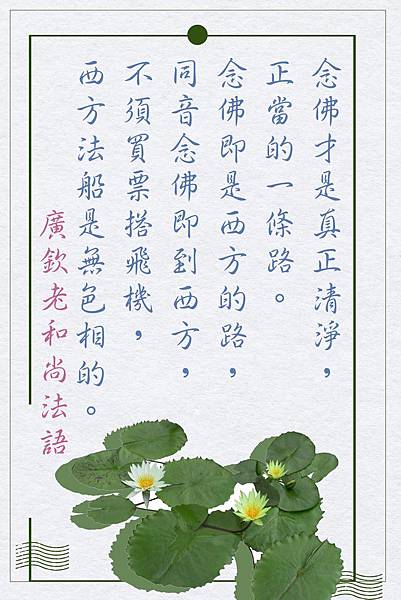 念佛才是真正清淨，
正當的一條路。
念佛即是西方的路，
同音念佛即到西方，
不須買票搭飛機，
西方法船是無色相的。
廣欽老和尚法語